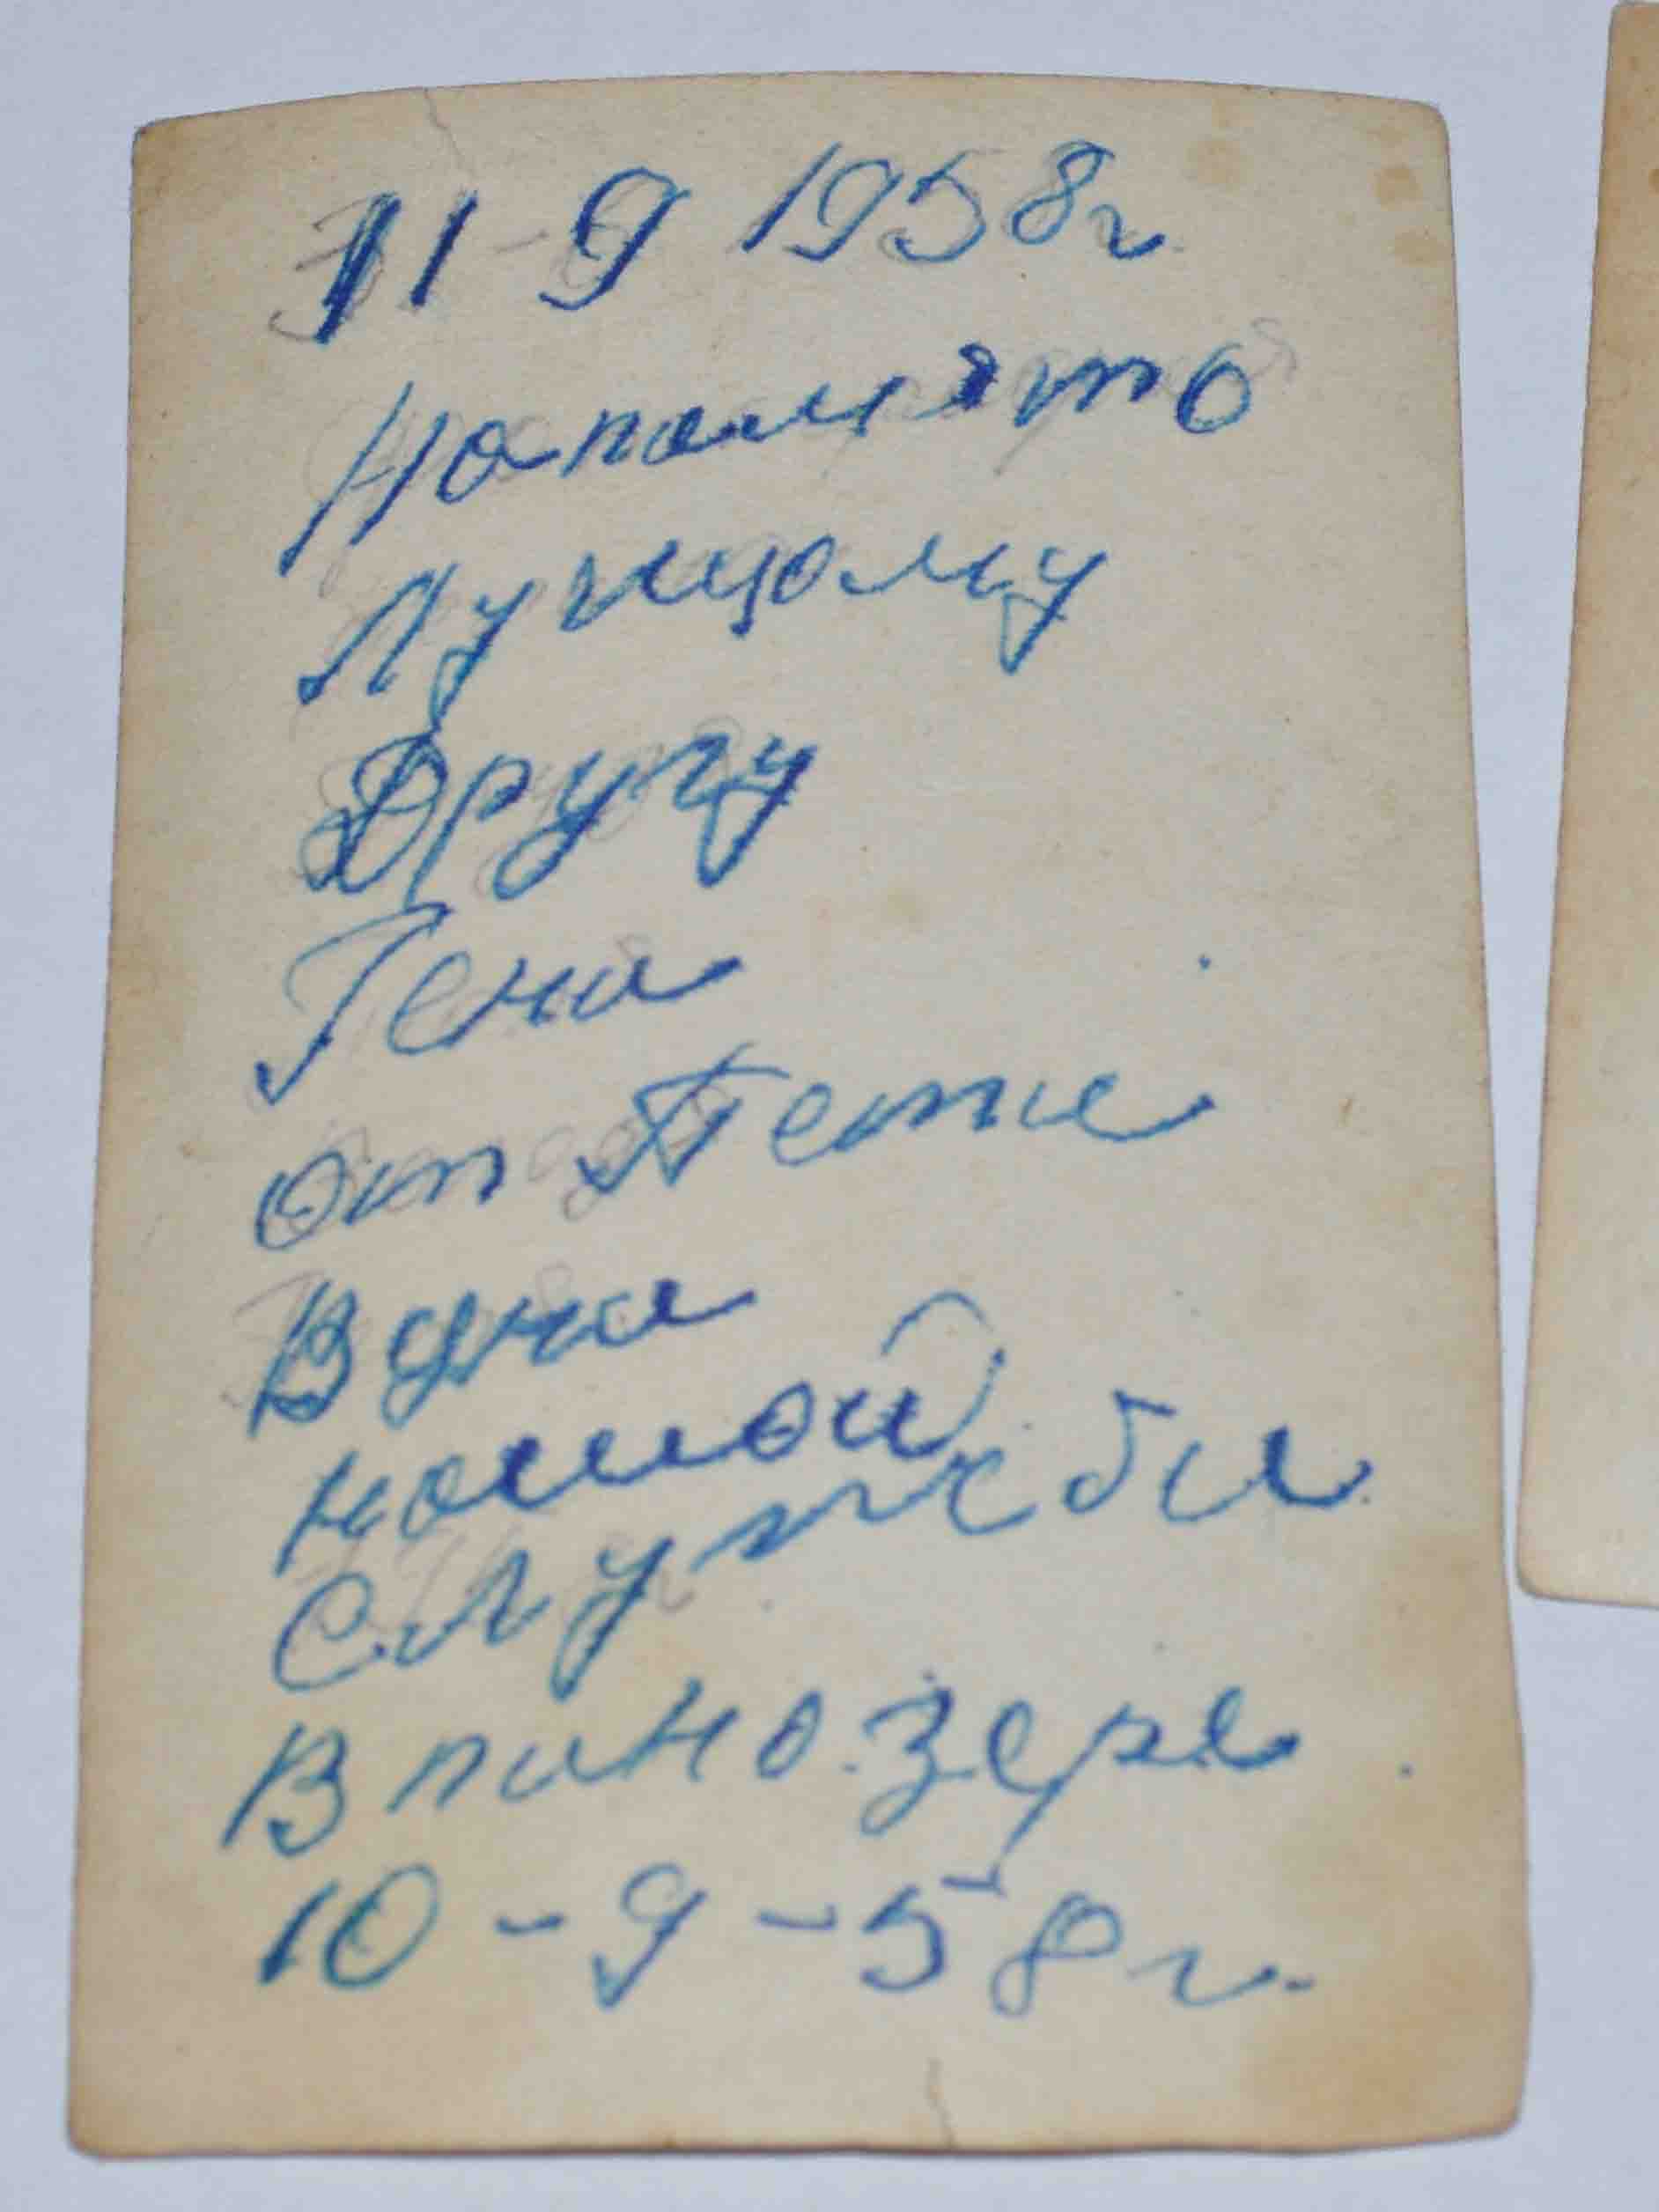 11-9 1958г.
Напомято
Лучщому
Другу
Гени
от Пети
В дни
нашой
Службы
В пино.зере
10-9-58г.